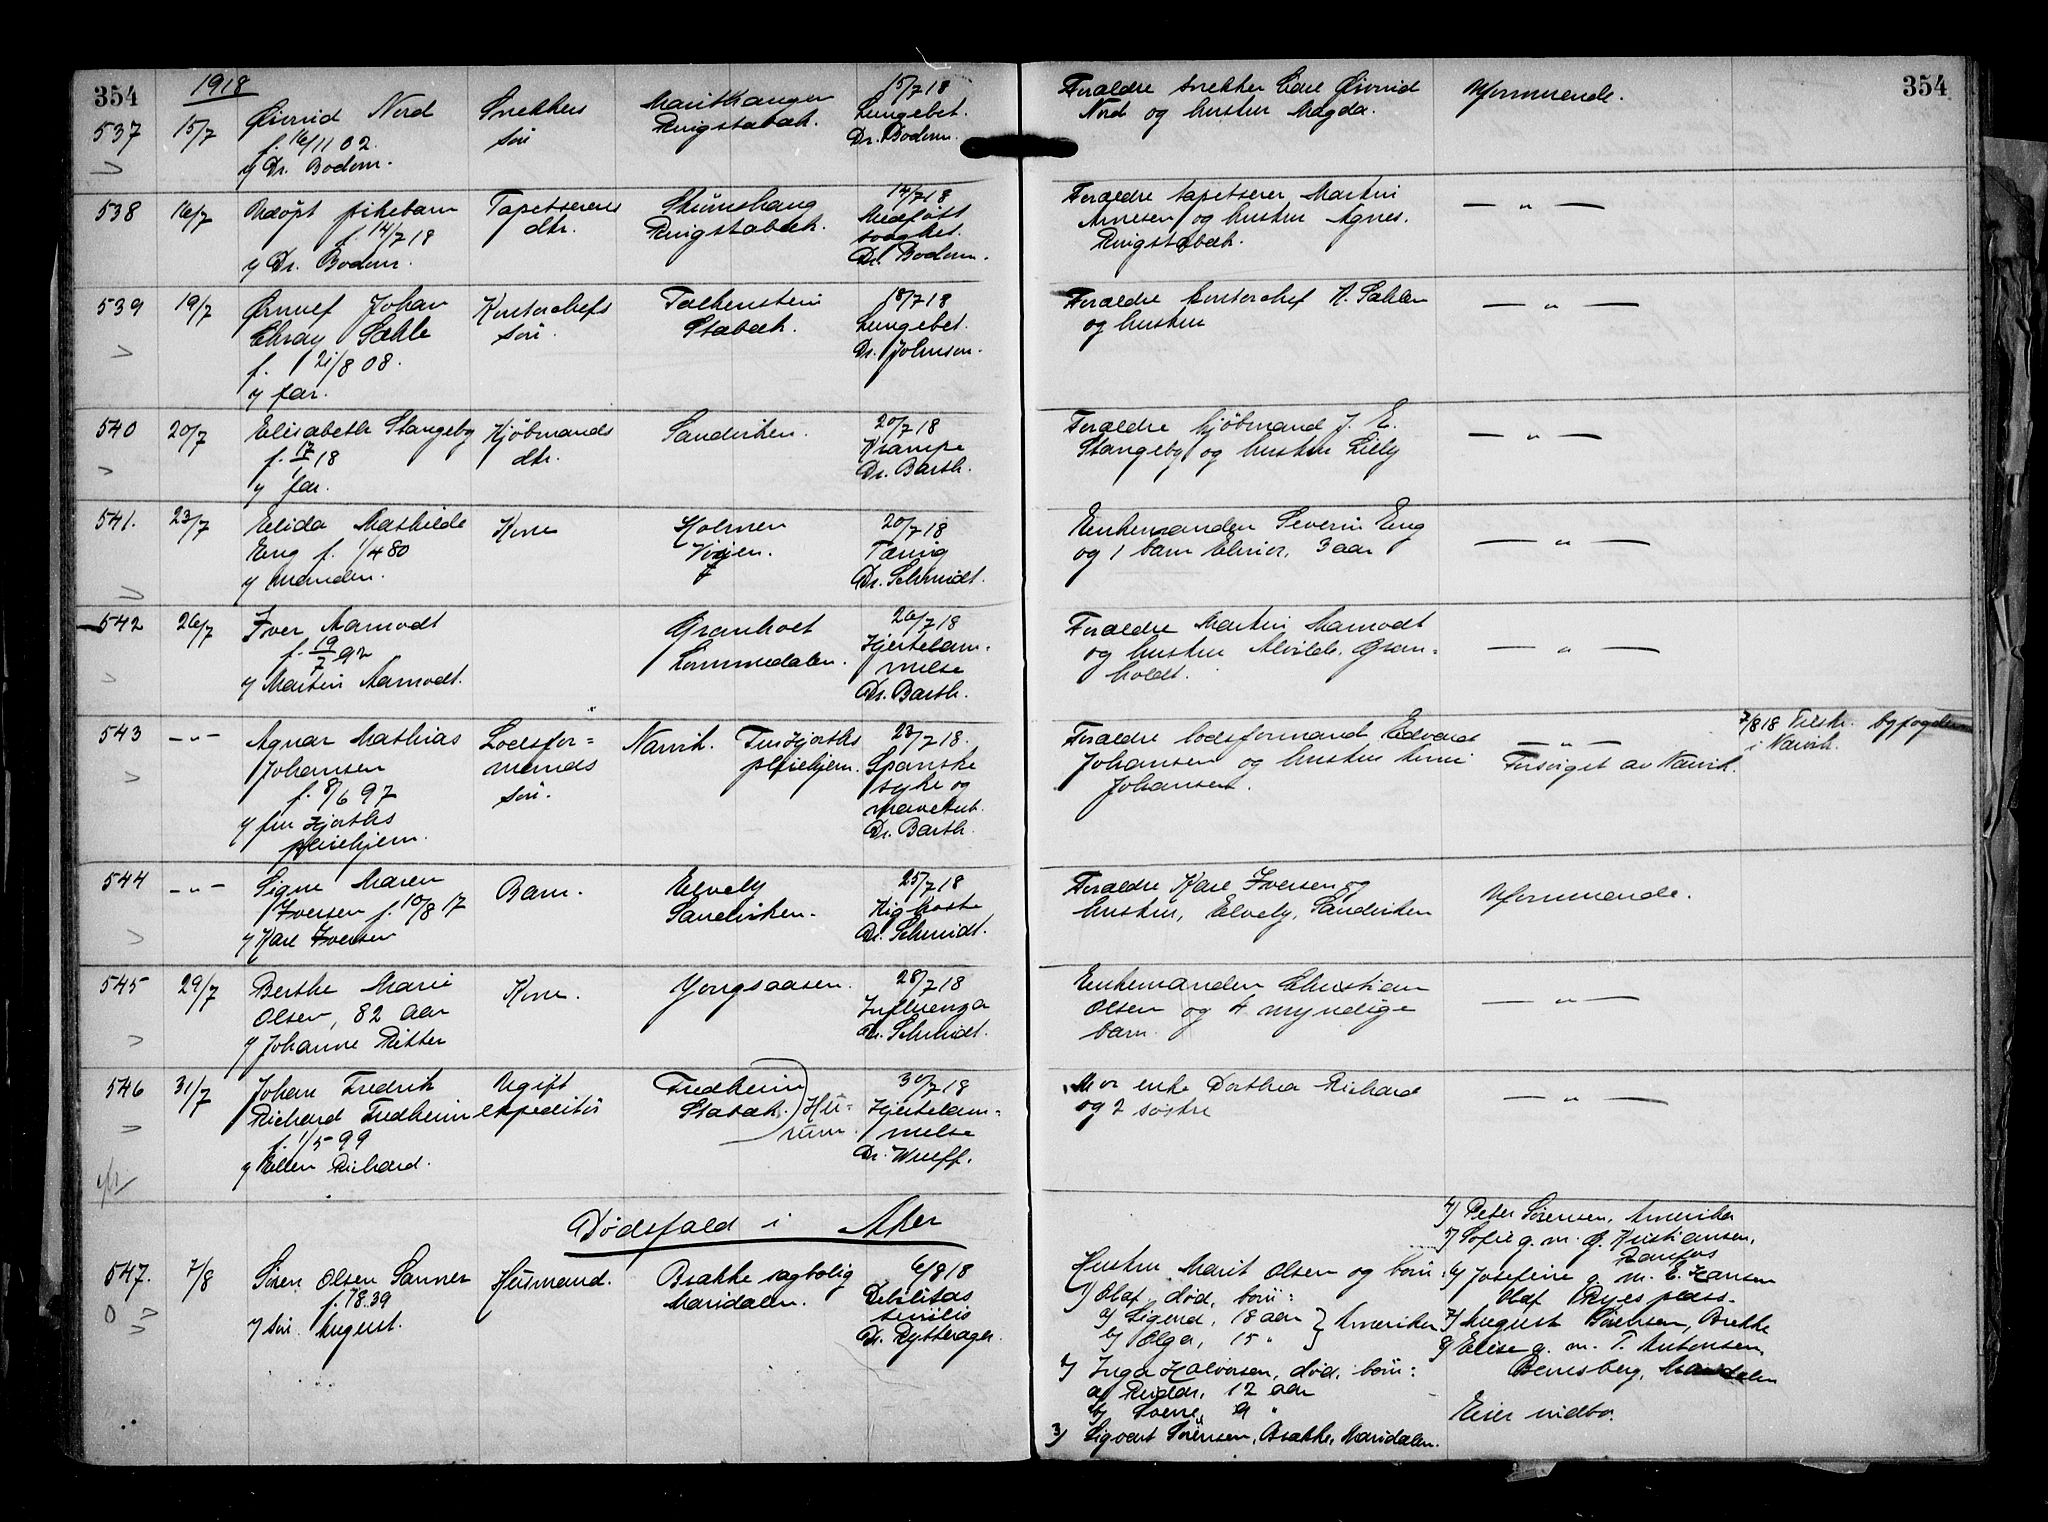 354
1918
354
537
15/7
Øivind Nord
f. 16/11 02.
v/ Dr. Bodom.
Snekkers
søn
Marithaugen
Ringstabæk.
15/7 18
Lungebet.
Dr. Bodom.
Forældre snekker Carl Øivind
Nord og hustru Magda.
Uformuende.
538
16/7
Udøpt pikebarn
f. 14/7 18
v/ Dr. Bodom.
Tapetserers
dtr.
Ringstabæk.
14/7 18
Medfødt
svaghet.
Dr. Bodom.
Forældre tapetserer Martin
Arnesen og hustru Agnes.
Ringstabæk.
— " —
539
19/7
Ørnulf Johan
Sæhle
f. 21/8 08.
v/ far.
Kontorchefs
søn.
Falkenstein
Stabæk.
18/7 18
Lungebet.
Dr. Johnson.
Forældre kontorchef N. Sæhle
og hustru
— " —
540
20/7
Elisabeth Stangeby
f. 17/1 18
v/ far.
Kjøbmands
dtr.
Sandviken.
20/7 18
Krampe
Dr. Barth.
Forældre kjøbmand J. E.
Stangeby og hustru Lilly
— " —
541.
23/7
Elida Mathilde
Eng f. 1/4 80
v/ manden.
Kone
Holmen
Vøien.
20/7 18
Tæring
Dr. Schmidt.
Enkemanden Severin Eng
og 1 barn Elinor, 3 aar
— " —
542
26/7
Iver Aamodt
f. 19/7 92
v/ Martin Aamodt.
Granholt
Lommedalen.
26/7 18
Hjertelam-
melse
Dr. Barth.
Forældre Martin Aamodt
og hustru Alvilde, Gran-
holdt.
— " —
543
— " —
Agnar Mathias
Johansen
f. 8/6 97
v/ fru Hjorths
pleiehjem.
Lodsfor=
mands
søn.
Narvik.
Fru Hjorths
pleiehjem.
23/7 18.
Spanske
syke og
mavetub.
Dr. Barth.
Forældre lodsformand Edvard
Johansen og hustru
Johansen.
— " —
Forsørget av Narvik.
7/8 18 Tilskr. byfogden
i Narvik.
544
— " —
Signe Maren
Iversen f. 10/8 17
v/ Karl Iversen
Barn.
Elvely
Sandviken.
25/7 18
Kighoste
Dr. Schmidt.
Forældre Karl Iversen og
hustru, Elvely, Sandviken
Uformuende.
545
29/7
Berthe Marie
Olsen, 82 aar
v/ Johanne Ritter
Kone.
Yongsaasen.
28/7 18
Influenza
Dr. Schmidt.
Enkemanden Christian
Olsen og 4 myndige
barn.
— " —
546
31/7
Johan Fredrik
Richard Fredheim
f. 1/5 99
v/ Ellen Richard.
Ugift
expeditør
Fredheim
Stabæk.
Hu-
rum.
30/7 18
Hjertelam=
melse
Dr. Wulff.
Mor enke Dorthea Richard
og 2 søstre
— " —
Dødsfald i Aker
547.
7/8
Søren Olsen Sanner
f. 78.39
v/ søn August.
Husmand.
Brække sagbolig
Maridalen.
6/8 18
Debilitas
senilis
Dr. Rytterager
Hustru Marit Olsen og børn:
1) Olaf, død, børn:
a) Sigurd, 18 aar
b) Olga, 15 "
} Amerika
2) Inga Halvorsen, død, børn:
a) Reidar, 12 aar
b) Sverre, 9 "
3) Sigvart Sørensen, Brække, Maridalen.
4) Peter Sørensen, Amerika
5) Sofie g. m. O. Kristiansen,
6) Josefine g. m. E. Hansen
Olaf Ryes plass.
7) August Sørensen, Brekke
8) Elise g. m. T. Antonsen,
Maridalen
Eier indbo.